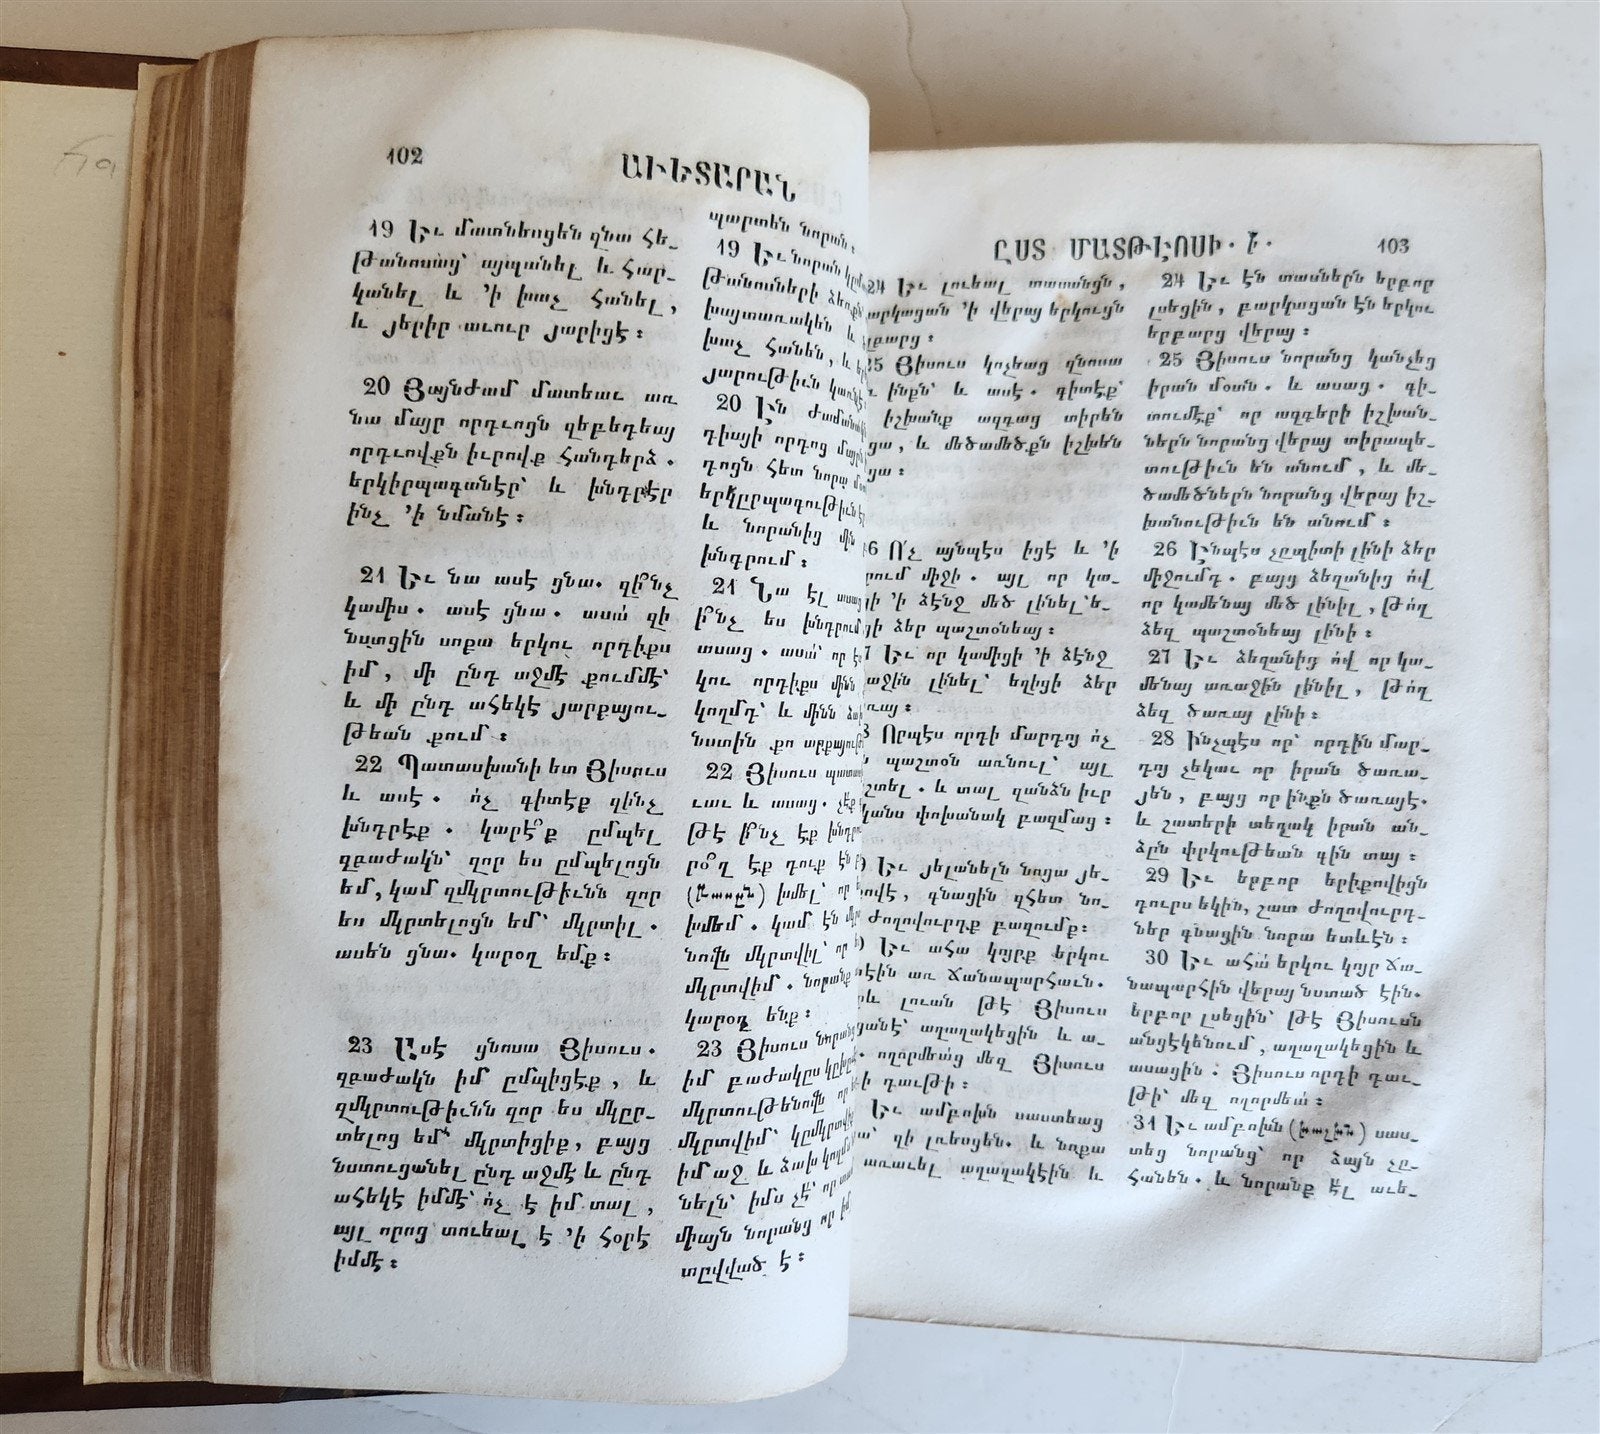 102
ԱՒԵՏԱՐԱՆ
19 Եւ մատնեսցեն զնա հե-
թանոսաց՝ այպանել և հար-
կանել և ՚ի խաչ հանել,
և յերիր աւուր յարիցէ։
20 Յայնժամ մատեաւ առ
նա մայր որդւոցն զեբեդեայ
որդւովքն իւրովք հանդերձ.
երկիրպագանէր՝ և խնդրէր
ինչ ՚ի նմանէ։
21 Եւ նա ասէ ցնա. զի՞նչ
կամիս. ասէ ցնա. ասա՛ զի
նստցին սոքա երկու որդիքս
իմ, մի ընդ աջմէ քումմէ՝
և մի ընդ ահեկէ յարքայու-
թեան քում։
22 Պատասխանի ետ Յիսուս
և ասէ. ո՛չ գիտէք զինչ
խնդրէք. կարէ՞ք ըմպել
զբաժակն՝ զոր ես ըմպելոցն
եմ, կամ զմկրտութիւնն զոր
ես մկրտելոցն եմ՝ մկրտիլ.
ասեն ցնա. կարօղ եմք։
23 Ասէ ցնոսա Յիսուս.
զբաժակն իմ ըմպիցէք, և
զմկրտութիւնն զոր ես մկըր-
տելոց եմ՝ մկրտիցիք, բայց
նստուցանել ընդ աջմէ և ընդ
ահեկէ իմմէ՝ ո՛չ է իմ տալ,
այլ որոց տուեալ է ՚ի հօրէ
իմմէ։
պարտեն նորան։
19 Եւ նորան
թանոսների
խայտառակեն և
խաչ հանեն, և
յարութիւն
20 Էն
դիայի որդոց
դոցն հետ նորա
երկըրպագութիւն
և նորանից մին
խնդրում։
21 Նա էլ ասաց
ի՞նչ ես խնդրում
ասաց. ասա՛՝ որ
կու որդիքս մինն
կողմդ՝ և մինն
նստին քո
22 Յիսուս
ւաւ և ասաց.
թէ ի՞նչ էք
րօ՞ղ էք դուք էն
(կասըն) խմել՝ որ
խմեմ. կամ էն
նուվն մկրտվիլ՝ որ
մկրտվիմ. նորանք
կարօղ ենք։
23 Յիսուս նորանց
իմ բաժակըս
մկրտութենուվն որ
մկրտվիմ՝
իմ աջ և ձախ
նելն՝ իմս չէ՝ որ
միայն նորանց որ
տըվված է։
ԸՍՏ ՄԱՏԹԷՈՍԻ. Ի.
103
24 Եւ լուեալ տասանցն,
բարկացան ՚ի վերայ երկուցն
25 Յիսուս կոչեաց զնոսա
ինքն՝ և ասէ. գիտէք՝
իշխանք ազգաց տիրեն
և մեծամեծքն իշխեն
Ո՛չ այնպէս իցէ և ՚ի
միջի. այլ որ կա-
՚ի ձէնջ մեծ լինել՝ ե-
ձեր պաշտօնեայ։
Եւ որ կամիցի ՚ի ձէնջ
լինել՝ եղիցի ձեր
Որպէս որդի մարդոյ ո՛չ
պաշտօն առնուլ՝ այլ
և տալ զանձն իւր
փոխանակ բազմաց։
Եւ յելանելն նոցա յե-
գնացին զհետ նո-
ժողովուրդք բազումք։
Եւ ահա կոյրք երկու
առ ճանապարհաւն.
լուան թէ Յիսուս
աղաղակեցին և ա-
ողորմեա՛ց մեզ Յիսուս
դաւթի։
Եւ ամբոխն սաստեաց
զի լռեսցեն. և նոքա
առաւել աղաղակէին և
24 Եւ էն տասներն երբոր
լսեցին, բարկացան էն երկու
երբարց վերայ։
25 Յիսուս նորանց կանչեց
իրան մօտն. և ասաց. գի-
տումէք՝ որ ազգերի իշխան-
ներն նորանց վերայ տիրապե-
տութիւն են անում, և մե-
ծամեծներն նորանց վերայ իշ-
խանութիւն են անում։
26 Էնպէս չըպիտի լինի ձեր
միջումդ. բայց ձեզանից ո՛վ
որ կամենայ մեծ լինիլ, թո՛ղ
ձեզ պաշտօնեայ լինի։
27 Եւ ձեզանից ո՛վ որ կա-
մենայ առաջին լինիլ, թո՛ղ
ձեզ ծառայ լինի։
28 Ինչպէս որ՝ որդին մար-
դոյ չեկաւ որ իրան ծառա-
յեն, բայց որ ինքն ծառայէ.
և շատերի տեղակ իրան ան-
ձըն փրկութեան գին տայ։
29 Եւ երբոր երիքովիցն
դուրս եկին, շատ ժողովուրդ-
ներ գնացին նորա ետևէն։
30 Եւ ահա՛ երկու կոյր ճա-
նապարհին վերայ նստած էին.
երբոր լսեցին՝ թէ Յիսուսն
անցէկենում, աղաղակեցին և
ասացին. Յիսուս որդի դաւ-
թի՝ մեզ ողորմեա՛։
31 Եւ ամբոխն (խալխն) սաս-
տեց նորանց՝ որ ձայն չը-
հանեն. և նորանք էլ աւե-